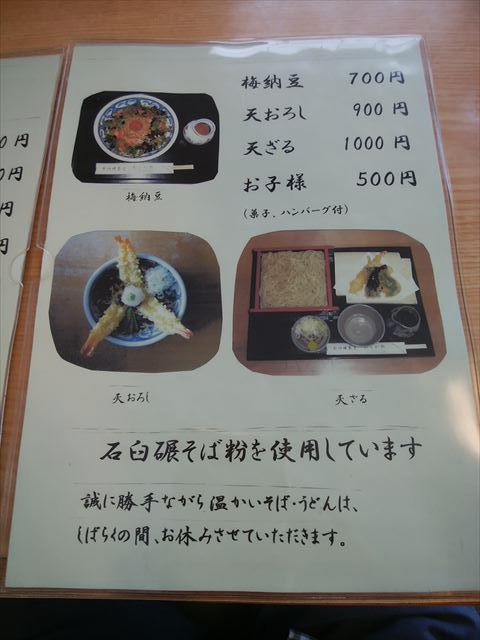 梅納豆 700円
天おろし 900円
天ざる 1000円
お子様 500円
(菓子、ハンバーグ付)
梅納豆
天おろし
天ざる
石臼碾そば粉を使用しています
誠に勝手ながら温かいそば・うどんは、
しばらくの間、お休みさせていただきます。
0円
0円
円
円